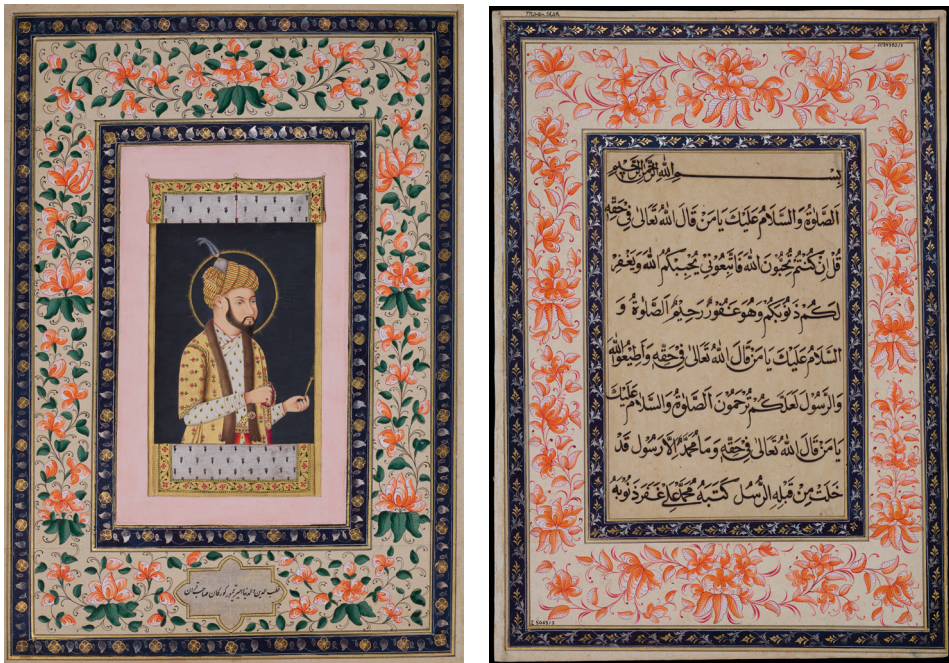 قطب الدین والدنیا امیر تیمور کورکان صاحب قران
بِسْمِ اللهِ الرَّحْمٰنِ الرَّحِيْمِ
اَلصَّلٰوةُ وَالسَّلَامُ عَلَيْكَ يَا مَنْ قَالَ اللهُ تَعَالٰى فِيْ حَقِّهٖ
قُلْ اِنْ كُنْتُمْ تُحِبُّوْنَ اللهَ فَاتَّبِعُوْنِيْ يُحْبِبْكُمُ اللهُ وَيَغْفِرْ
لَكُمْ ذُنُوْبَكُمْ وَهُوَ غَفُوْرٌ رَحِيْمٌ اَلصَّلٰوةُ وَ
السَّلَامُ عَلَيْكَ يَا مَنْ قَالَ اللهُ تَعَالٰى فِيْ حَقِّهٖ وَاَطِيْعُوا اللهَ
وَالرَّسُوْلَ لَعَلَّكُمْ تُرْحَمُوْنَ اَلصَّلٰوةُ وَالسَّلَامُ عَلَيْكَ
يَا مَنْ قَالَ اللهُ تَعَالٰى فِيْ حَقِّهٖ وَمَا مُحَمَّدٌ اِلَّا رَسُوْلٌ قَدْ
خَلَتْ مِنْ قَبْلِهِ الرُّسُلُ كَتَبَهُ مُحَمَّد عَلِي غَفَرَ ذُنُوْبَهُ